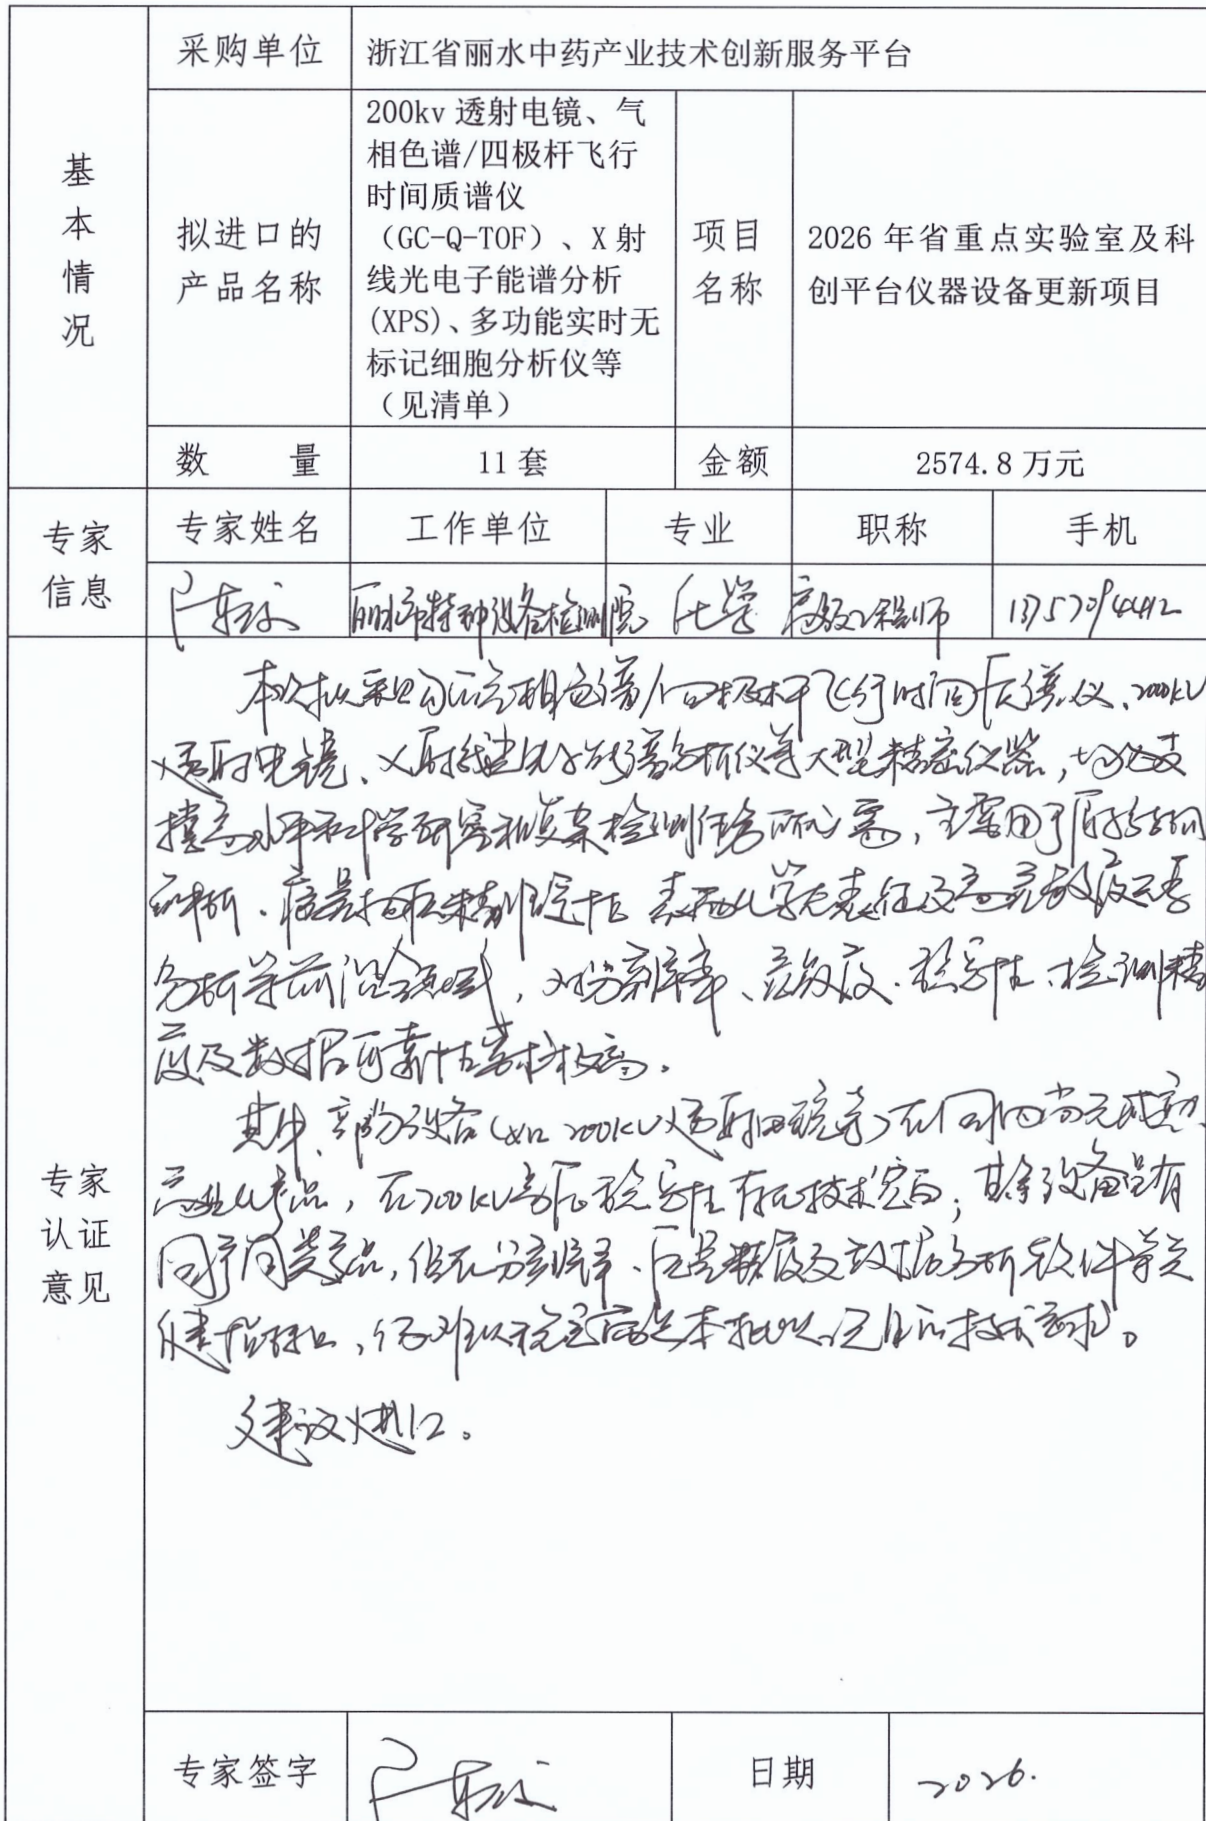 基本情况
采购单位
浙江省丽水中药产业技术创新服务平台
拟进口的
产品名称
200kv 透射电镜、气
相色谱/四极杆飞行
时间质谱仪
（GC-Q-TOF）、X 射
线光电子能谱分析
(XPS)、多功能实时无
标记细胞分析仪等
（见清单）
项目
名称
2026 年省重点实验室及科
创平台仪器设备更新项目
数 量
11 套
金额
2574.8 万元
专家
信息
专家姓名
工作单位
专业
职称
手机
丽水市特种设备检测院
化学
高级工程师
专家
认证
意见
本次拟采购的气相色谱/四极杆飞行时间质谱仪、200kV
透射电镜、X射线光电子能谱分析仪等大型精密仪器，均为支
撑高水平科学研究和复杂检测任务所必需，主要用于原子结构
解析、痕量物质精准定性、表面化学态表征及高灵敏度元素
分析等前沿领域，对分辨率、灵敏度、稳定性、检测精
度及数据可靠性要求极高。
其中，部分设备（如200kV透射电镜等）在国内尚无成熟
产业化产品，在200kV高压稳定性存在技术空白；其余设备虽有
国产同类产品，但在分辨率、质量精度及数据分析软件等关
键指标上，仍难以稳定满足本批次项目的技术要求。
建议进口。
专家签字
日期
2026.